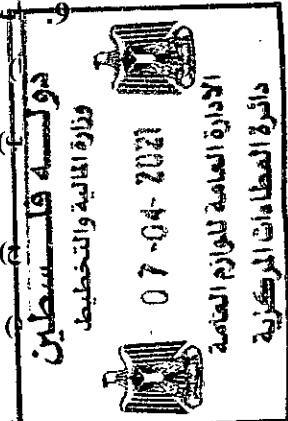 دولــــة فلــــسطين
وزارة المالية والتخطيط
07-04-2021
الادارة العامة للوازم العامة
دائرة العطاءات المركزية